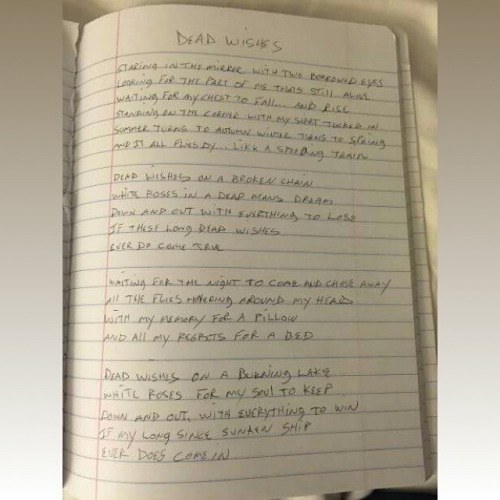 DEAD WISHES
STARING IN THE MIRROR WITH TWO BORROWED EYES
LOOKING FOR THE PART OF ME THATS STILL ALIVE
WAITING FOR MY CHEST TO FALL... AND RISE
STANDING ON THE CORNER WITH MY SHIRT TUCKED IN
SUMMER TURNS TO AUTUMN WINTER TURNS TO SPRING
AND IT ALL FLIES BY... LIKE A SPEEDING TRAIN
DEAD WISHES ON A BROKEN CHAIN
WHITE ROSES IN A DEAD MANS DREAM
DOWN AND OUT WITH EVERYTHING TO LOSE
IF THESE LONG DEAD WISHES
EVER DO COME TRUE
WAITING FOR THE NIGHT TO COME AND CHASE AWAY
All THE FLIES HOVERING AROUND MY HEAD
WITH MY MEMORY FOR A PILLOW
AND ALL MY REGRETS FOR A BED
DEAD WISHES ON A BURNING LAKE
WHITE ROSES FOR MY SOUL TO KEEP
DOWN AND OUT, WITH EVERYTHING TO WIN
IF MY LONG SINCE SUNKEN SHIP
EVER DOES COME IN